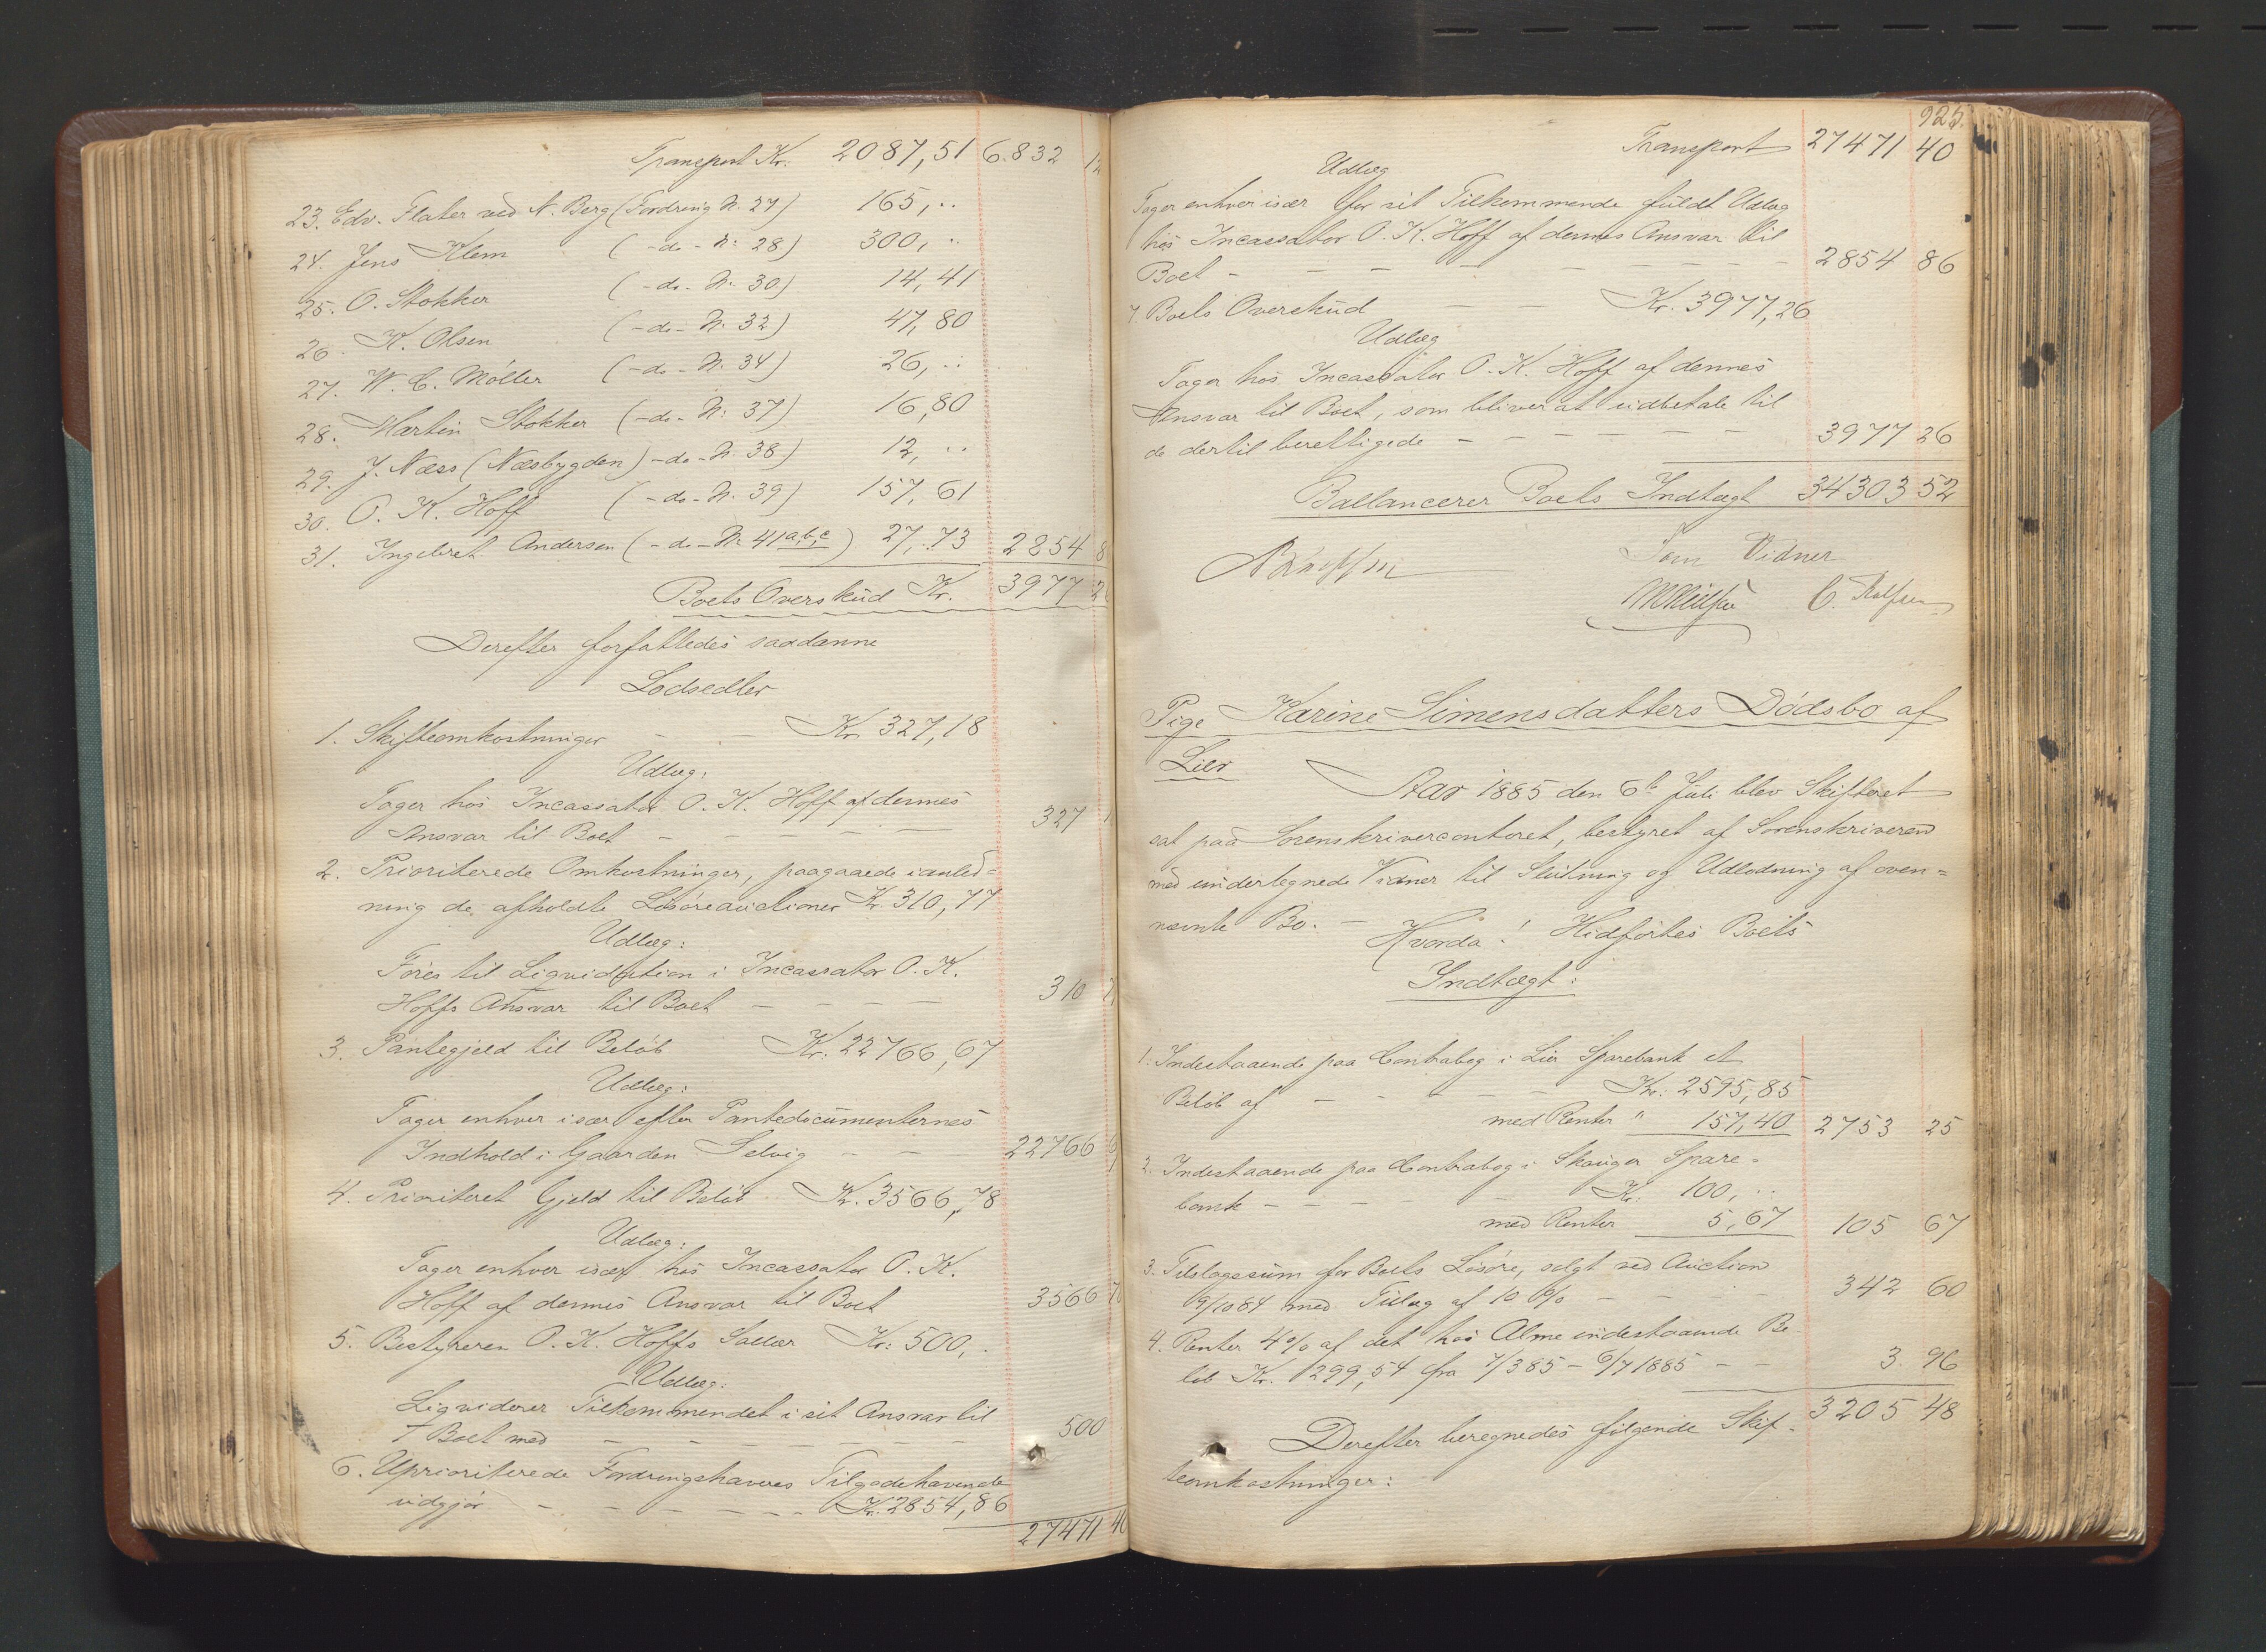 Transport Kr. 2087,51 6832 12
23. Edv. Flater ved N. Berg (Fordring N. 27) 165,..
24. Jens Klem (-do- N: 28) 300,..
25. O. Stokker (-do- N. 30) 14,41
26. K. Olsen (-do- N. 32) 47,80
27. W. C. Møller (-do- N. 34) 26,..
28. Martin Stokker (-do- N: 37) 16,80
29. J. Næss (Næsbygden) -do- N. 38) 12,..
30. O. K. Hoff (-do- N. 39) 157,61
31. Ingebret Andersen (-do- N. 41 a,b,c) 27,73 2854 8
Boets Overskud Kr. 3977 2
Derefter forfattedes saadanne
Lodsedler
1. Skifteomkostninger - Kr. 327,18
Udlæg:
Tager hos Incassator O. K. Hoff af dennes
Ansvar til Boet - - - - - 327 1
2. Prioriterede Omkostninger, paagaaede i anled=
ning de afholdte Løsøreauctioner Kr. 310,77
Udlæg:
Føres til Liqvidation i Incassator O. K.
Hoffs Ansvar til Boet - - - - 310 7
3. Pantegjeld til Beløb Kr. 22766,67
Udlæg:
Tager enhver især efter Pantedocumenternes
Indhold i Gaarden Selvig - - 22766 6
4. Prioriteret Gjeld til Beløb Kr. 3566,78
Udlæg:
Tager enhver især hos Incassator O. K.
Hoff af dennes Ansvar til Boet 3566 78
5. Bestyreren O. K. Hoffs Sallær Kr: 500,.
Udlæg:
Liqviderer Tilkommendet i sit Ansvar til
Boet med - - - - - 500
6. Uprioriterede Fordringshaveres Tilgodehavende
udgjør - - - - - Kr. 2854,86
27471 40
925.
Transport 27471 40
Udlæg
Tager enhver især for sit Tilkommende fuldt Udlæg
hos Incassator O. K. Hoff af dennes Ansvar til
Boet - - - - - - - 2854 86
7. Boets Overskud - - Kr. 3977,26
Udlæg
Tager hos Incassator O. K. Hoff af dennes
Ansvar til Boet, som bliver at udbetale til
de dertil berettigede - - - - - 3977 26
Ballancerer Boets Indtægt 34303 52
Som Vidner
Pige Karine Simensdatters Dødsbo af
Lier
Aar 1885 den 6te Juli blev Skifteret
sat paa Sorenskrivercontoret, bestyret af Sorenskriveren
med undertegnede Vidner til Slutning og Udlodning af oven=
nævnte Bo. - Hvorda! Hidførtes Boets
Indtægt:
1. Indestaaende paa Contrabog i Lier Sparebank et
Beløb af - - - - - Kr: 2595,85
med Renter " 157,40 2753 25
2. Indestaaende paa Contrabog i Skouger Spare=
bank - - - - Kr. 100,..
med Renter 5,67 105 67
3. Tilslagssum for Boets Løsøre, solgt ved Auction
9/10 84 med Tillæg af 10 % - - - 342 60
4. Renter 4 % af det hos Alme indestaaende Be-
løb Kr. 299,54 fra 7/3 85 - 6/7 1885 - - 3. 96
3205 48
Derefter beregnedes følgende Skif-
teomkostninger: